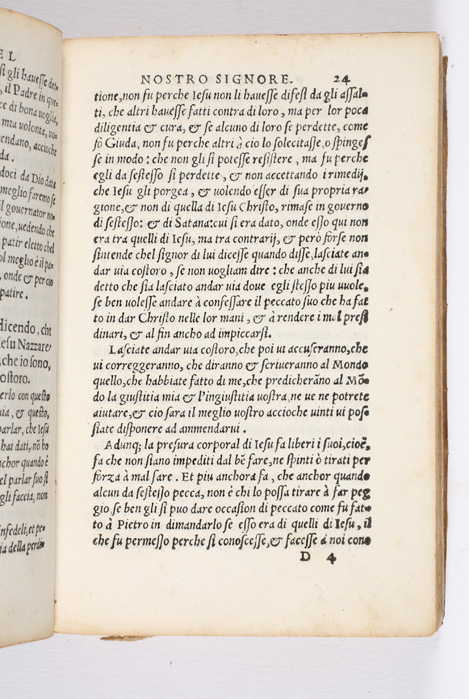 E L
si gli hauesse
il Padre in que
ce di bona uoglia
mia uolonta, non
endano, accioche
da.
doci da Dio data
meglio faremo se
l gouernator no
tione, uedendo che
patir eletto chel
ol meglio è il pa
, onde & per cio
patire.
dicendo, che
esu Nazzare/
che io sono,
costoro.
erlo con questo
uia, & questo,
parlar, che Iesu
hai dati, nō ho
nchor quando è
el parlar suo si
gli faccia, non
nfedeli, et pe-
ia della perdi
NOSTRO SIGNORE. 24
tione, non fu perche Iesu non li hauesse difesi da gli assal-
ti, che altri hauesse fatti contra di loro, ma per lor poca
diligentia & cura, & se alcuno di loro se perdette, come
fò Giuda, non fu perche altri à cio lo solecitasse, o spinges
se in modo: che non gli si potesse resistere, ma fu perche
egli da sestesso si perdette, & non accettando i rimedij,
che Iesu gli porgea, & uolendo esser di sua propria ra-
gione, & non di quella di Iesu Christo, rimase in gouerno
di sestesso: & di Satana: cui si era dato, onde esso qui non
era tra quelli di Iesu, ma tra contrarij, & però forse non
sintende chel signor di lui dicesse quando disse, lasciate an-
dar uia costoro, se non uogliam dire: che anche di lui sia
detto che sia lasciato andar uia doue egli stesso piu uuole,
se ben uolesse andare à confessare il peccato suo che ha fat
to in dar Christo nelle lor mani, & à rendere i mal presi
dinari, & al fin ancho ad impiccarsi.
Lasciate andar uia costoro, che poi ui accuseranno, che
ui correggeranno, che diranno & scriueranno al Mondo
quello, che habbiate fatto di me, che predicherāno al Mō-
do la giustitia mia & l'ingiustitia uostra, ne ue ne potrete
aiutare, & cio sara il meglio uostro accioche uinti ui pos
siate disponere ad ammendarui.
Adunq; la presura corporal di Iesu fa liberi i suoi, cioè,
fa che non siano impediti dal bē fare, ne spinti ò tirati per
fòrza à mal fare. Et piu anchora fa, che anchor quando
alcun da sestesso pecca, non è chi lo possa tirare à far peg
gio, se ben gli si puo dare occasion di peccato come fu fat-
to à Pietro in dimandarlo se esso era di quelli di Iesu, il
che fu permesso perche si conoscesse, & facesse à noi cono
D 4